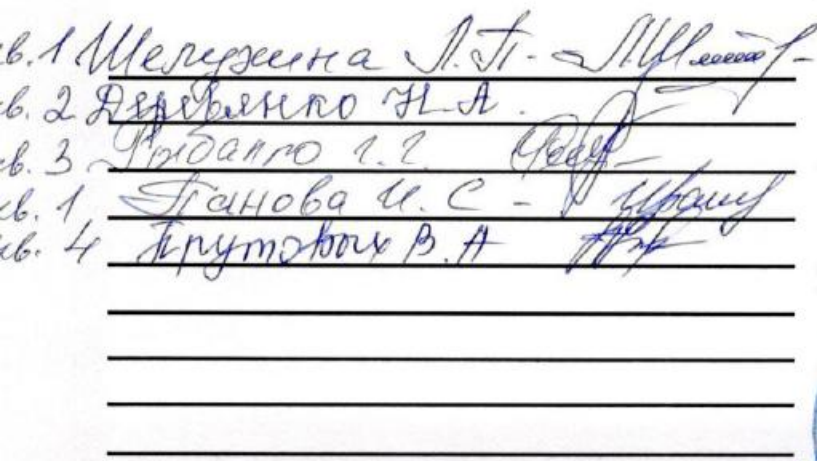 кв. 1 Шелужина Л.П. -
кв. 2 Деревянко Н.А.
кв. 3 Рыбалко Г.Г.
кв. 1 Панова И.С -
кв. 4 Прутовых В.А